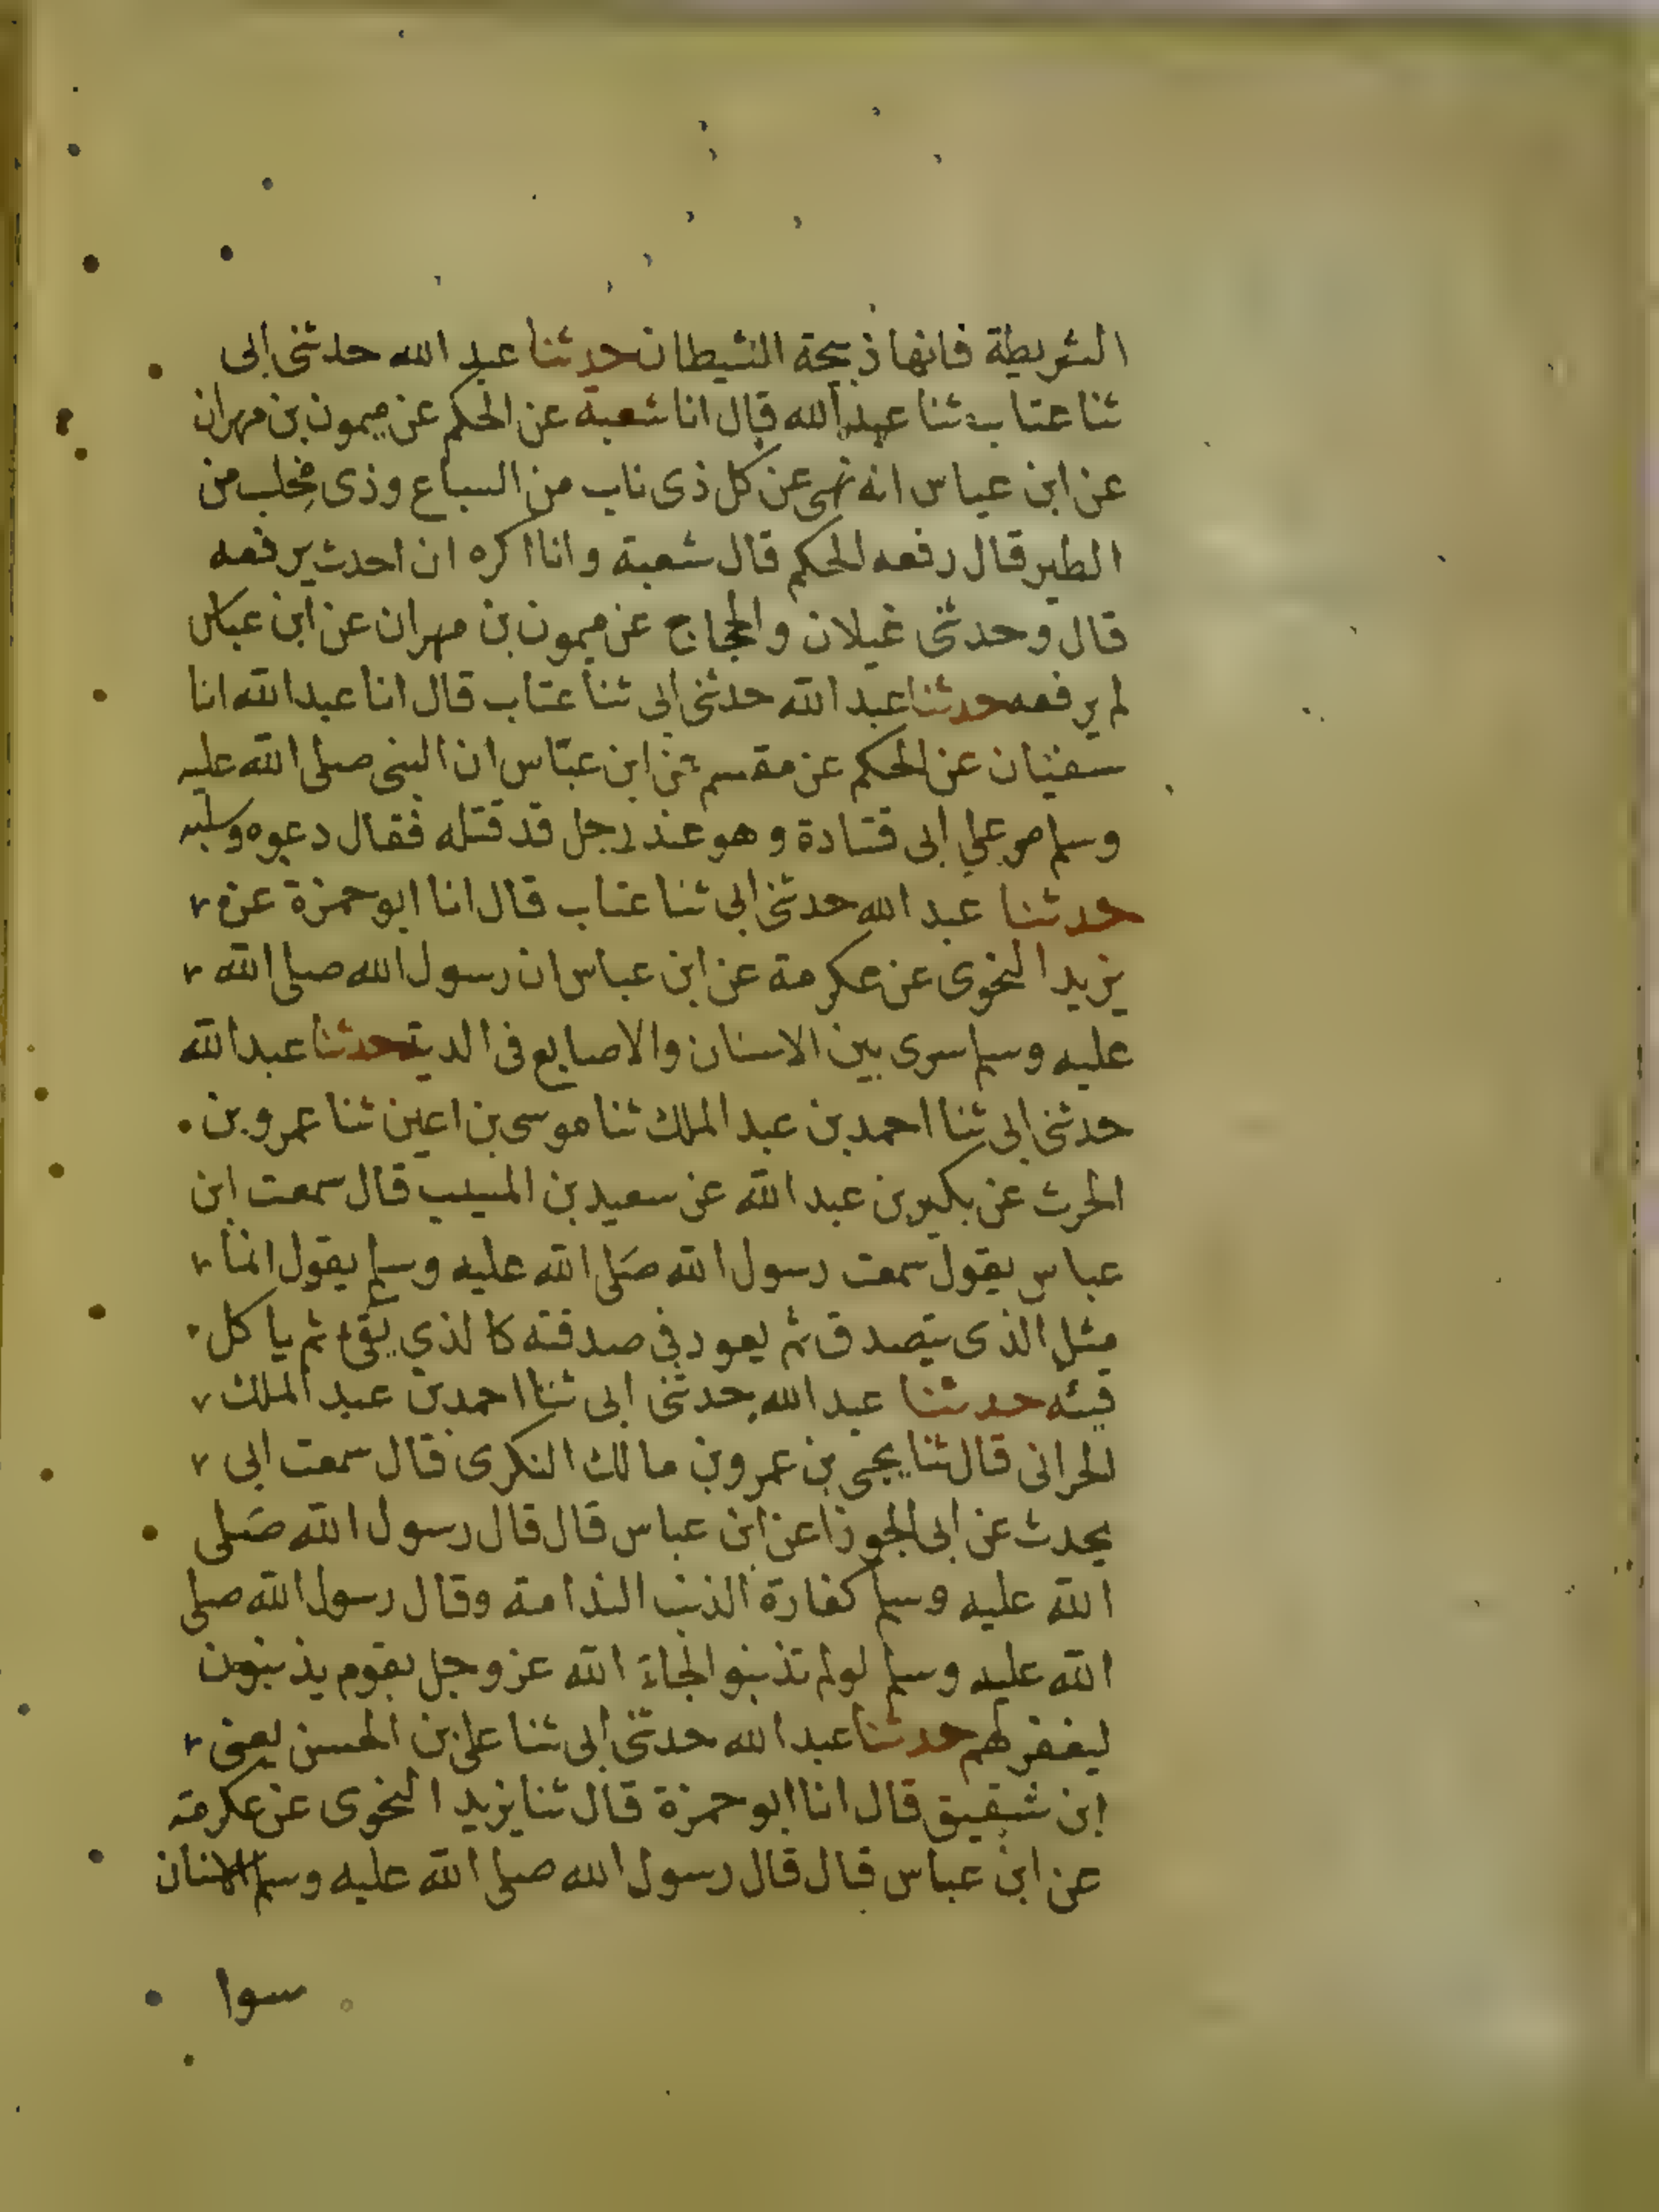 الشريطة فانها ذبيحة الشيطان حدثنا عبد الله حدثنى ابى
ثنا عتاب ثنا عبد الله قال انا شعبة عن الحكم عن ميمون بن مهران
عن ابن عباس انه نهى عن كل ذى ناب من السباع وذى مخلب من
الطير قال رفعه الحكم قال شعبة وانا اكره ان احدث يرفعه
قال وحدثنى غيلان والحجاج عن ميمون بن مهران عن ابن عباس
لم يرفعه حدثنا عبد الله حدثنى ابى ثنا عتاب قال انا عبد الله انا
سفيان عن الحكم عن مقسم عن ابن عباس ان النبى صلى الله عليه
وسلم مر على ابى قتادة وهو عند رجل قد قتله فقال دعوه وسلبه
حدثنا عبد الله حدثنى ابى ثنا عتاب قال انا ابو حمزة عن
يزيد النحوى عن عكرمة عن ابن عباس ان رسول الله صلى الله
عليه وسلم سوى بين الاسنان والاصابع فى الدية حدثنا عبد الله
حدثنى ابى ثنا احمد بن عبد الملك ثنا موسى بن اعين ثنا عمرو بن
الحرث عن بكير بن عبد الله عن سعيد بن المسيب قال سمعت ابن
عباس يقول سمعت رسول الله صَلى الله عليه وسلم يقول انما
مثل الذى يتصدق ثم يعود في صدقته كالذي يقىء ثم ياكل
قيئه حدثنا عبد الله حدثنى ابى ثنا احمد بن عبد الملك
الحرانى قال ثنا يحيى بن عمرو بن مالك النكرى قال سمعت ابى
يحدث عن ابى الجوزا عن ابن عباس قال قال رسول الله صَلى
الله عليه وسلم كفارة الذنب الندامة وقال رسول الله صلى
الله عليه وسلم لو لم تذنبوا لجاء الله عز وجل بقوم يذنبون
ليغفر لهم حدثنا عبد الله حدثنى ابى ثنا على بن الحسن يعنى
ابن شقيق قال انا ابو حمزة قال ثنا يزيد النحوى عن عكرمة
عن ابن عباس قال قال رسول الله صلى الله عليه وسلم الاسنان
سوا